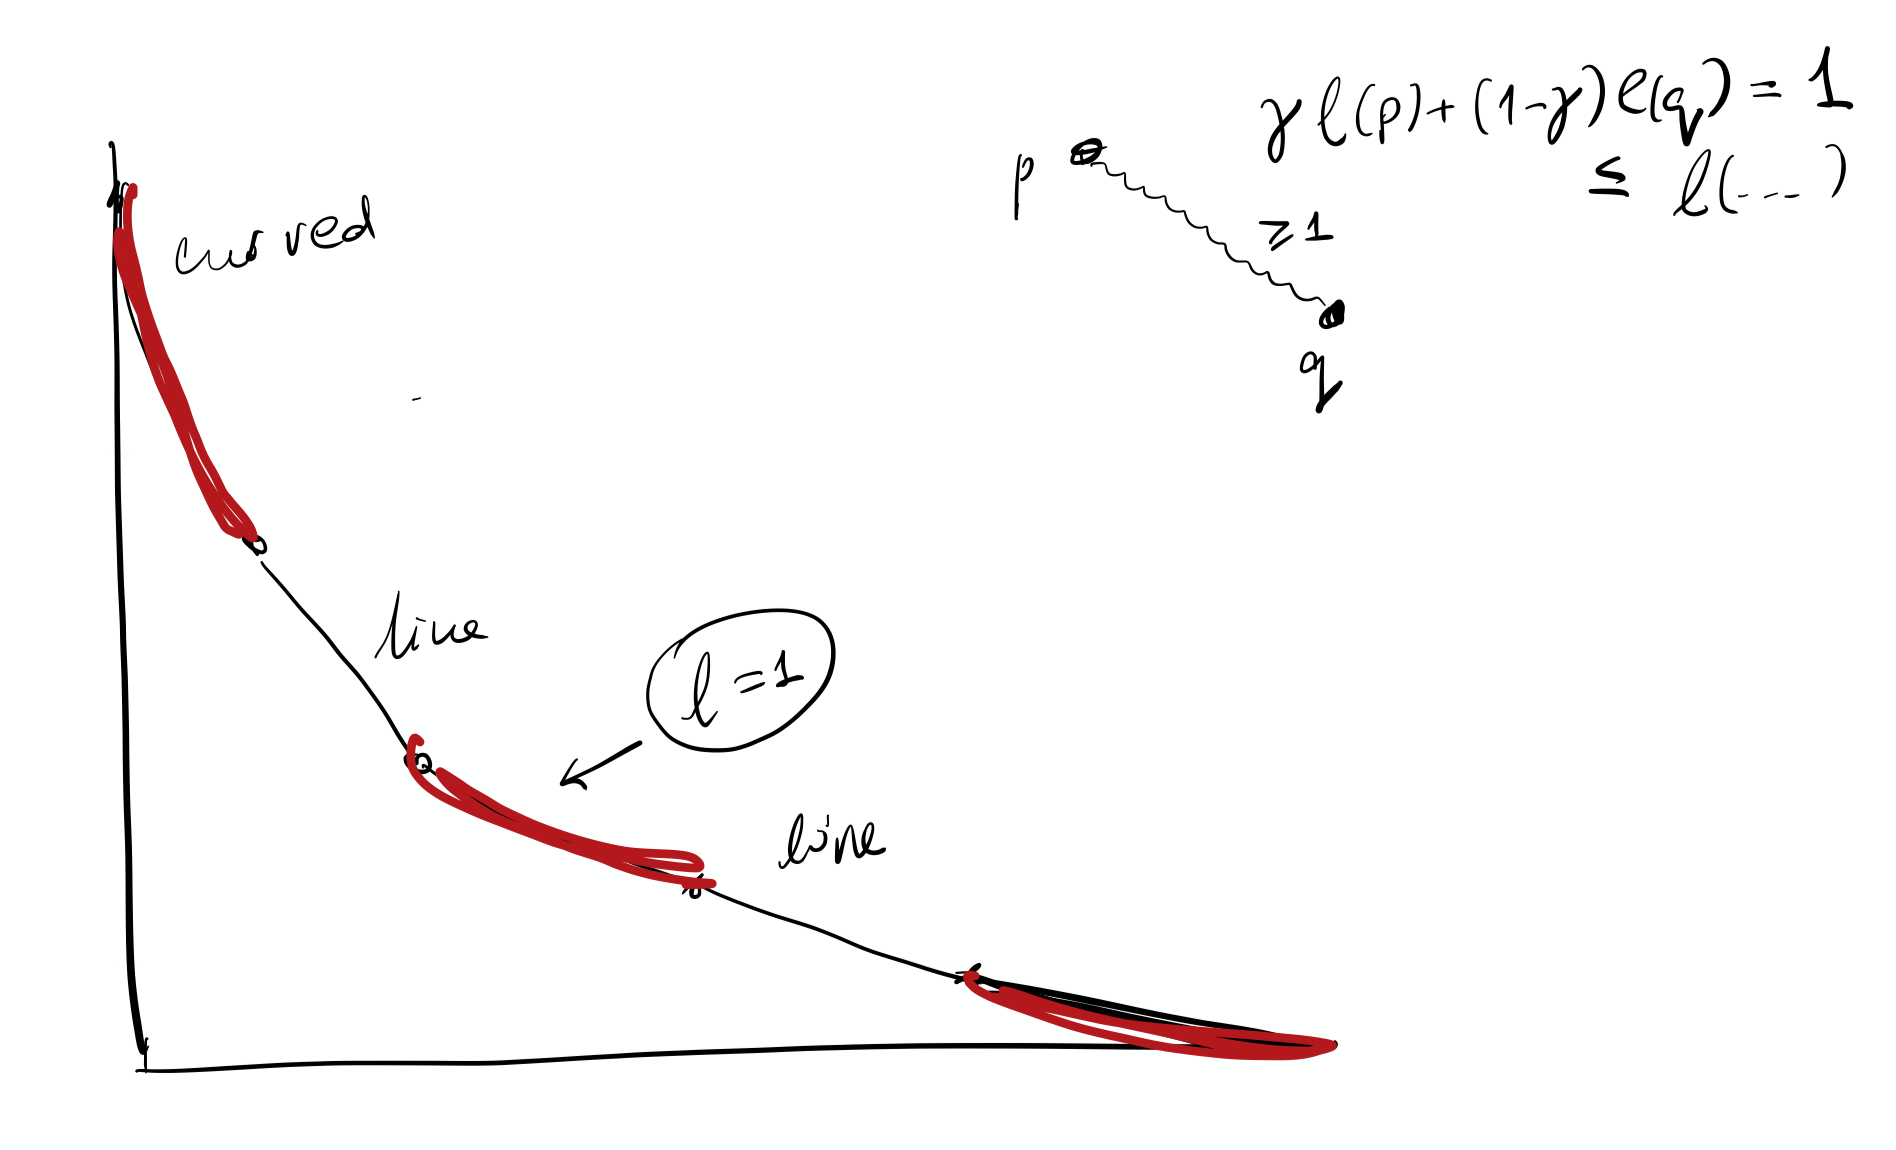 γ ℓ(p) + (1-γ) ℓ(q) = 1
≤ ℓ(...)
p
≥ 1
q
curved
line
ℓ = 1
line